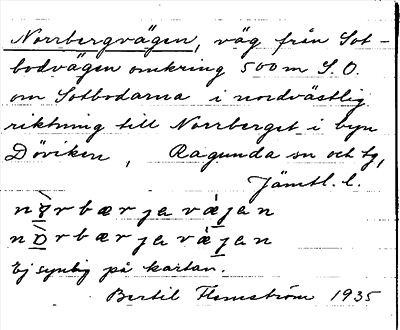 Norrbergvägen, väg från Sot-
bodvägen omkring 500 m S.O.
om Sotbodarna i nordvästlig
riktning till Norrberget i byn
Döviken, Ragunda sn och tg,
Jämtl. l.
Ej synlig på kartan.
Bertil Flemström 1935